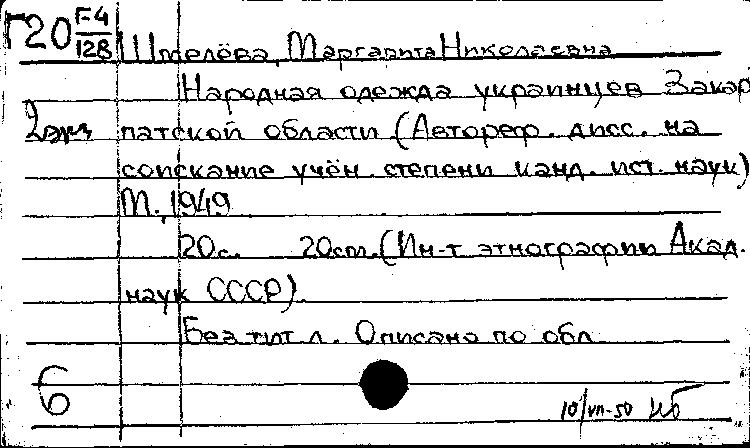 Г20 Г-4/128 Шмелёва, Маргарита Николаевна
Народная одежда украинцев Закар
2 экз патской области (Автореф. дисс. на
соискание учён. степени канд. ист. наук)
М., 1949
20с. 20см. (Ин-т этнографии Акад.
наук СССР).
Без тит. л. Описано по обл.
6
10/VII-50